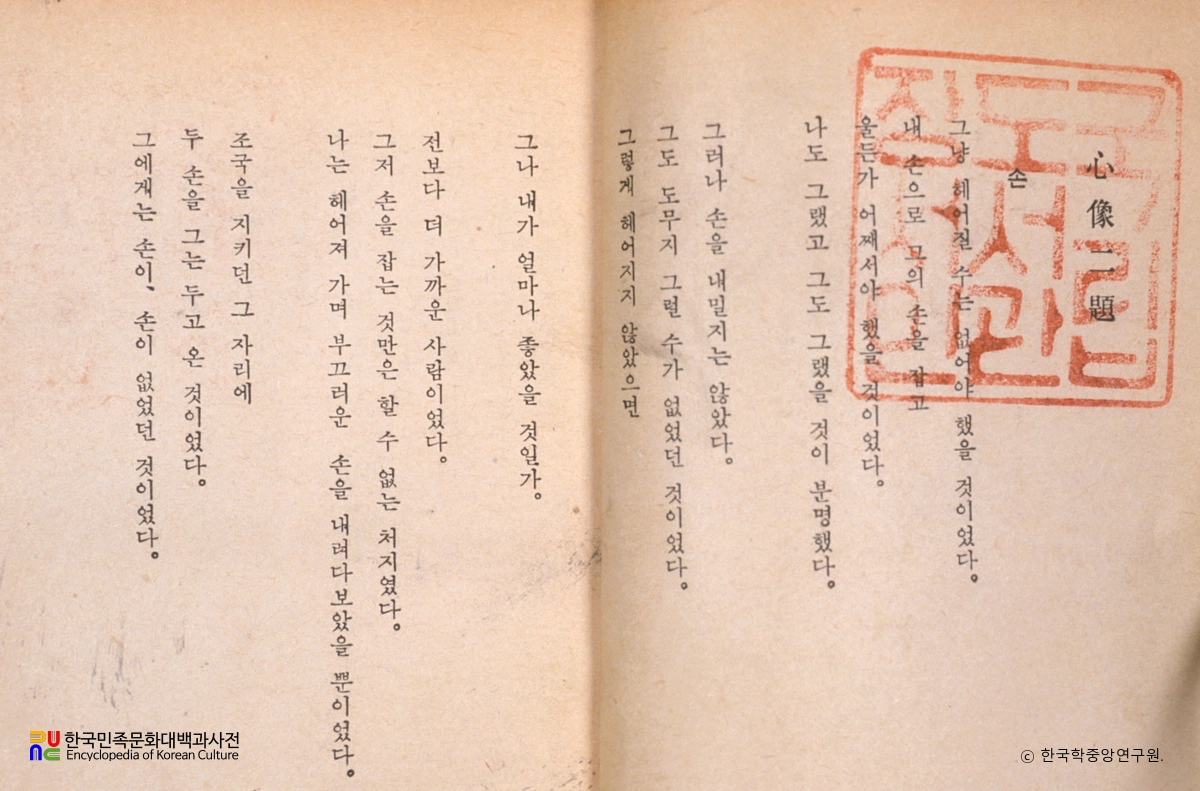 국립
도서관
장서인
心像二題
손
그냥 헤어질 수는 없어야 했을 것이었다。
내 손으로 그의 손을 잡고
울든가 어째서야 했을 것이었다。
나도 그랬고 그도 그랬을 것이 분명했다。
그러나 손을 내밀지는 않았다。
그도 도무지 그럴 수가 없었던 것이었다。
그렇게 헤어지지 않았으면
그나 내가 얼마나 좋았을 것일가。
전보다 더 가까운 사람이었다。
그저 손을 잡는 것만은 할 수 없는 처지였다。
나는 헤어져 가며 부끄러운 손을 내려다보았을 뿐이었다。
조국을 지키던 그 자리에
두 손을 그는 두고 온 것이었다。
그에게는 손이、 손이 없었던 것이었다。
한국민족문화대백과사전
Encyclopedia of Korean Culture
ⓒ 한국학중앙연구원.